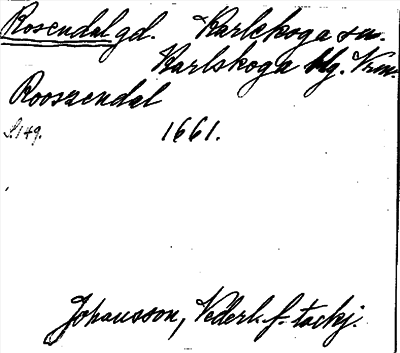 Rosendal gd. Karlskoga sn.
Karlskoga bg. Vrm.
Rooszendal
S. 149. 1661.
Johansson, Vederl. f. tackj.